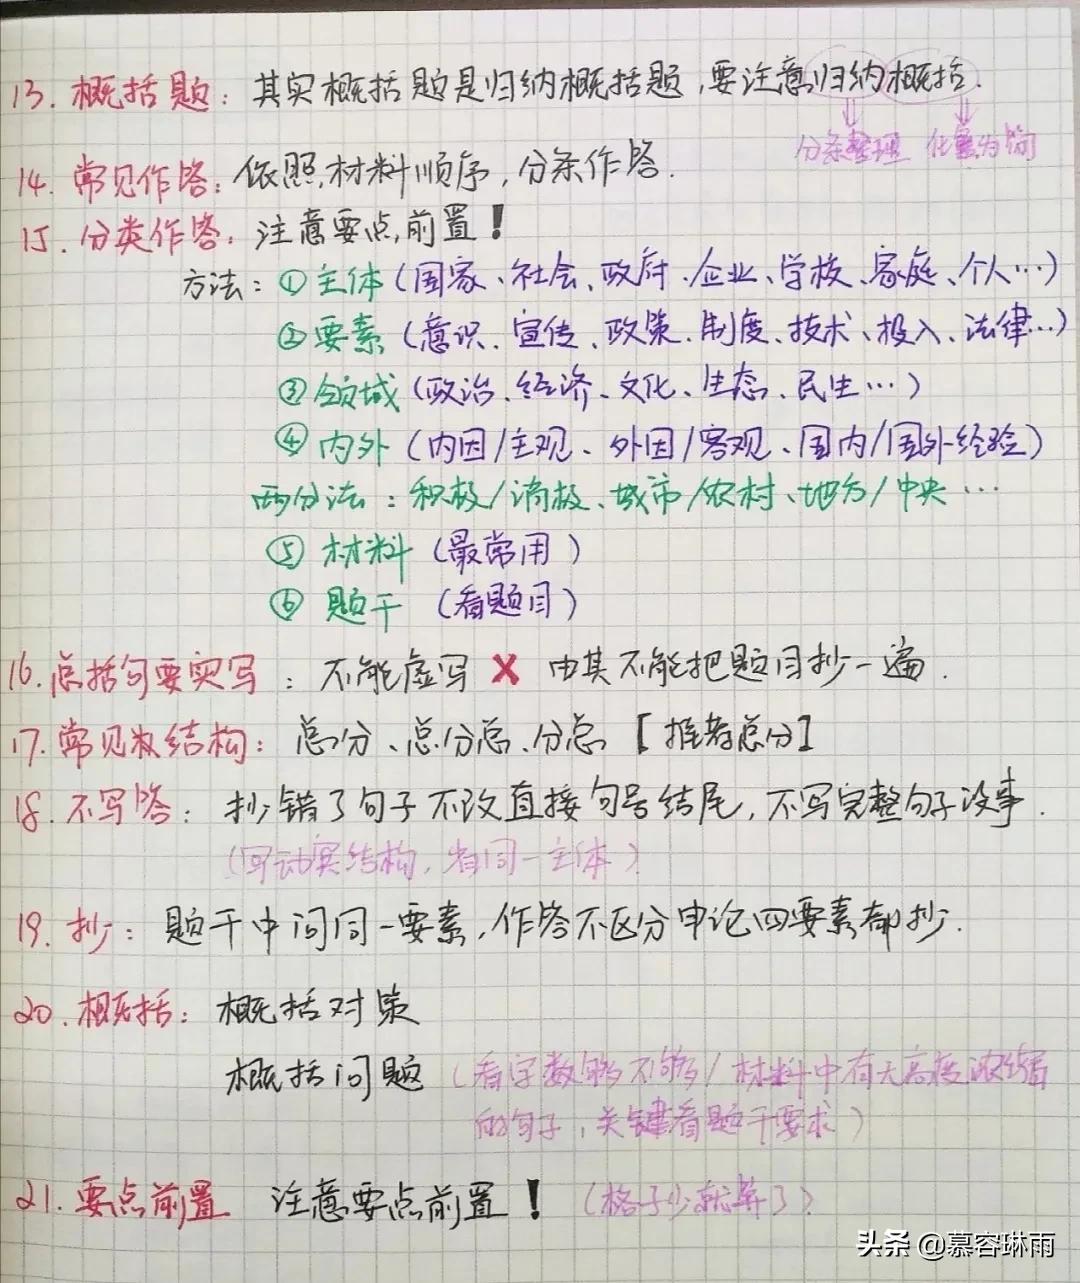 13. 概括题：其实概括题是归纳概括题,要注意归纳概括.
分条整理 化繁为简
14. 常见作答：依照材料顺序,分条作答.
15. 分类作答：注意要点前置！
方法：①主体(国家、社会、政府、企业、学校、家庭、个人…)
②要素(意识、宣传、政策、制度、技术、投入、法律…)
③领域(政治、经济、文化、生态、民生…)
④内外(内因/主观、外因/客观、国内/国外经验)
两分法：积极/消极、城市/农村、地方/中央…
⑤材料(最常用)
⑥题干(看题目)
16. 总括句要实写：不能虚写 ✗ 尤其不能把题目抄一遍.
17. 常见结构：总分、总分总、分总[推荐总分]
18. 不写答：抄错了句子不改直接句号结尾,不写完整句子没事.
(写动宾结构,省同一主体)
19. 抄：题干中问同一要素,作答不区分申论四要素都抄.
20. 概括：概括对策
概括问题(看字数够不够/材料中有无高度浓缩
的句子,关键看题干要求)
21. 要点前置 注意要点前置！(格子少就算了)
头条 @慕容琳雨